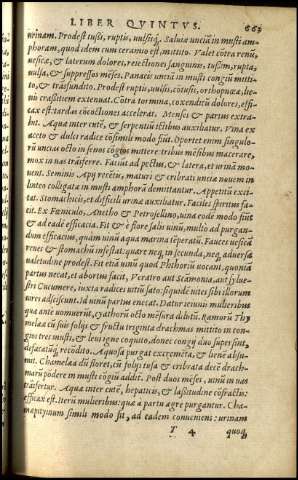 LIBER QVINTVS. 663
urinam. Prodest tussi, ruptis, uulsisq́. Saluia unciæ in musti am-
phoram, quod idem cum ceramio est, mittito. Valet côtra renũ,
uesicæ, & laterum dolores, reiectiones sanguinis, tußim, rupta,
uulsa, & suppressos mēses. Panacis unciã in musti congiũ mitti-
to, & trãsfundito. Prodest ruptis, uulsis, cõtusis, orthopnœæ, lie-
nis crassitiem extenuat. Cõtra tormina, coxendicũ dolores, effi-
cax est: tardas cõcoctiones accelerat. Menses & partus extra-
hit. Aqua inter cutē, & serpentiũ ictibus auxiliatur. Vina ex
aceto & dulci radice cõsimili modo fiũt. Oportet enim singulo-
rũ uncias octo in senos cõgios mittere tribus mēsibus macerare,
mox in uas trãsferre. Faciunt ad pectus, & latera, et urinã mo-
uent. Seminis Apij recētis, maturi & cribrati uncia nouem in
linteo colligata in musti amphorã demittantur. Appetitũ exci-
tat. Stomachicis, et difficili urinæ auxiliatur. Faciles spiritus fa-
cit. Ex Fœniculo, Anetho & Petroselino, uina eodē modo fiũt
& ad eadē efficacia. Fit & è flore salis uinũ, multo ad purgan-
dum efficacius, quàm uinũ aqua marina tēperatũ. Fauces uesicã
renes & stomachũ infestat. quare neq́ in secunda, neq́ aduersa
ualetudine prodest. Fit etiã uinũ quod Phthoriũ uocant, quoniã
partus necat, et abortus facit, Veratro aut Scãmonia, aut syluе-
stri Cucumere, iuxta radices uitiũ sato: siquidē uites sibi illorum
uires adsciscunt. Id uinũ partus enecat. Datur ieiunis mulieribus
quæ ante uomuerit, cyathorũ octo mēsura dilutũ. Ramorũ Thy
melææ cũ suis folijs & fructu triginta drachmas mittito in con-
gios tres musti, & leni igne coquito, donec congij duo supersint,
defæcatũq́ recõdito. Aquosa purgat excremēta, & lienē absu-
mit. Chamelææ dũ floret, cũ folijs tusæ & cribratæ decē drach-
marũ põdere in musti cõgiũ addit. Post duos mēses, uinũ in uas
trãsfertur. Aquæ inter cutē, hepaticis, & lassitudine cõfractis:
efficax est. Iterũ mulieribus: quæ a partu ægre purgantur. Cha-
mæpityinum simili modo fit, ad eadem conueniens: urinam
T 4 quoq́